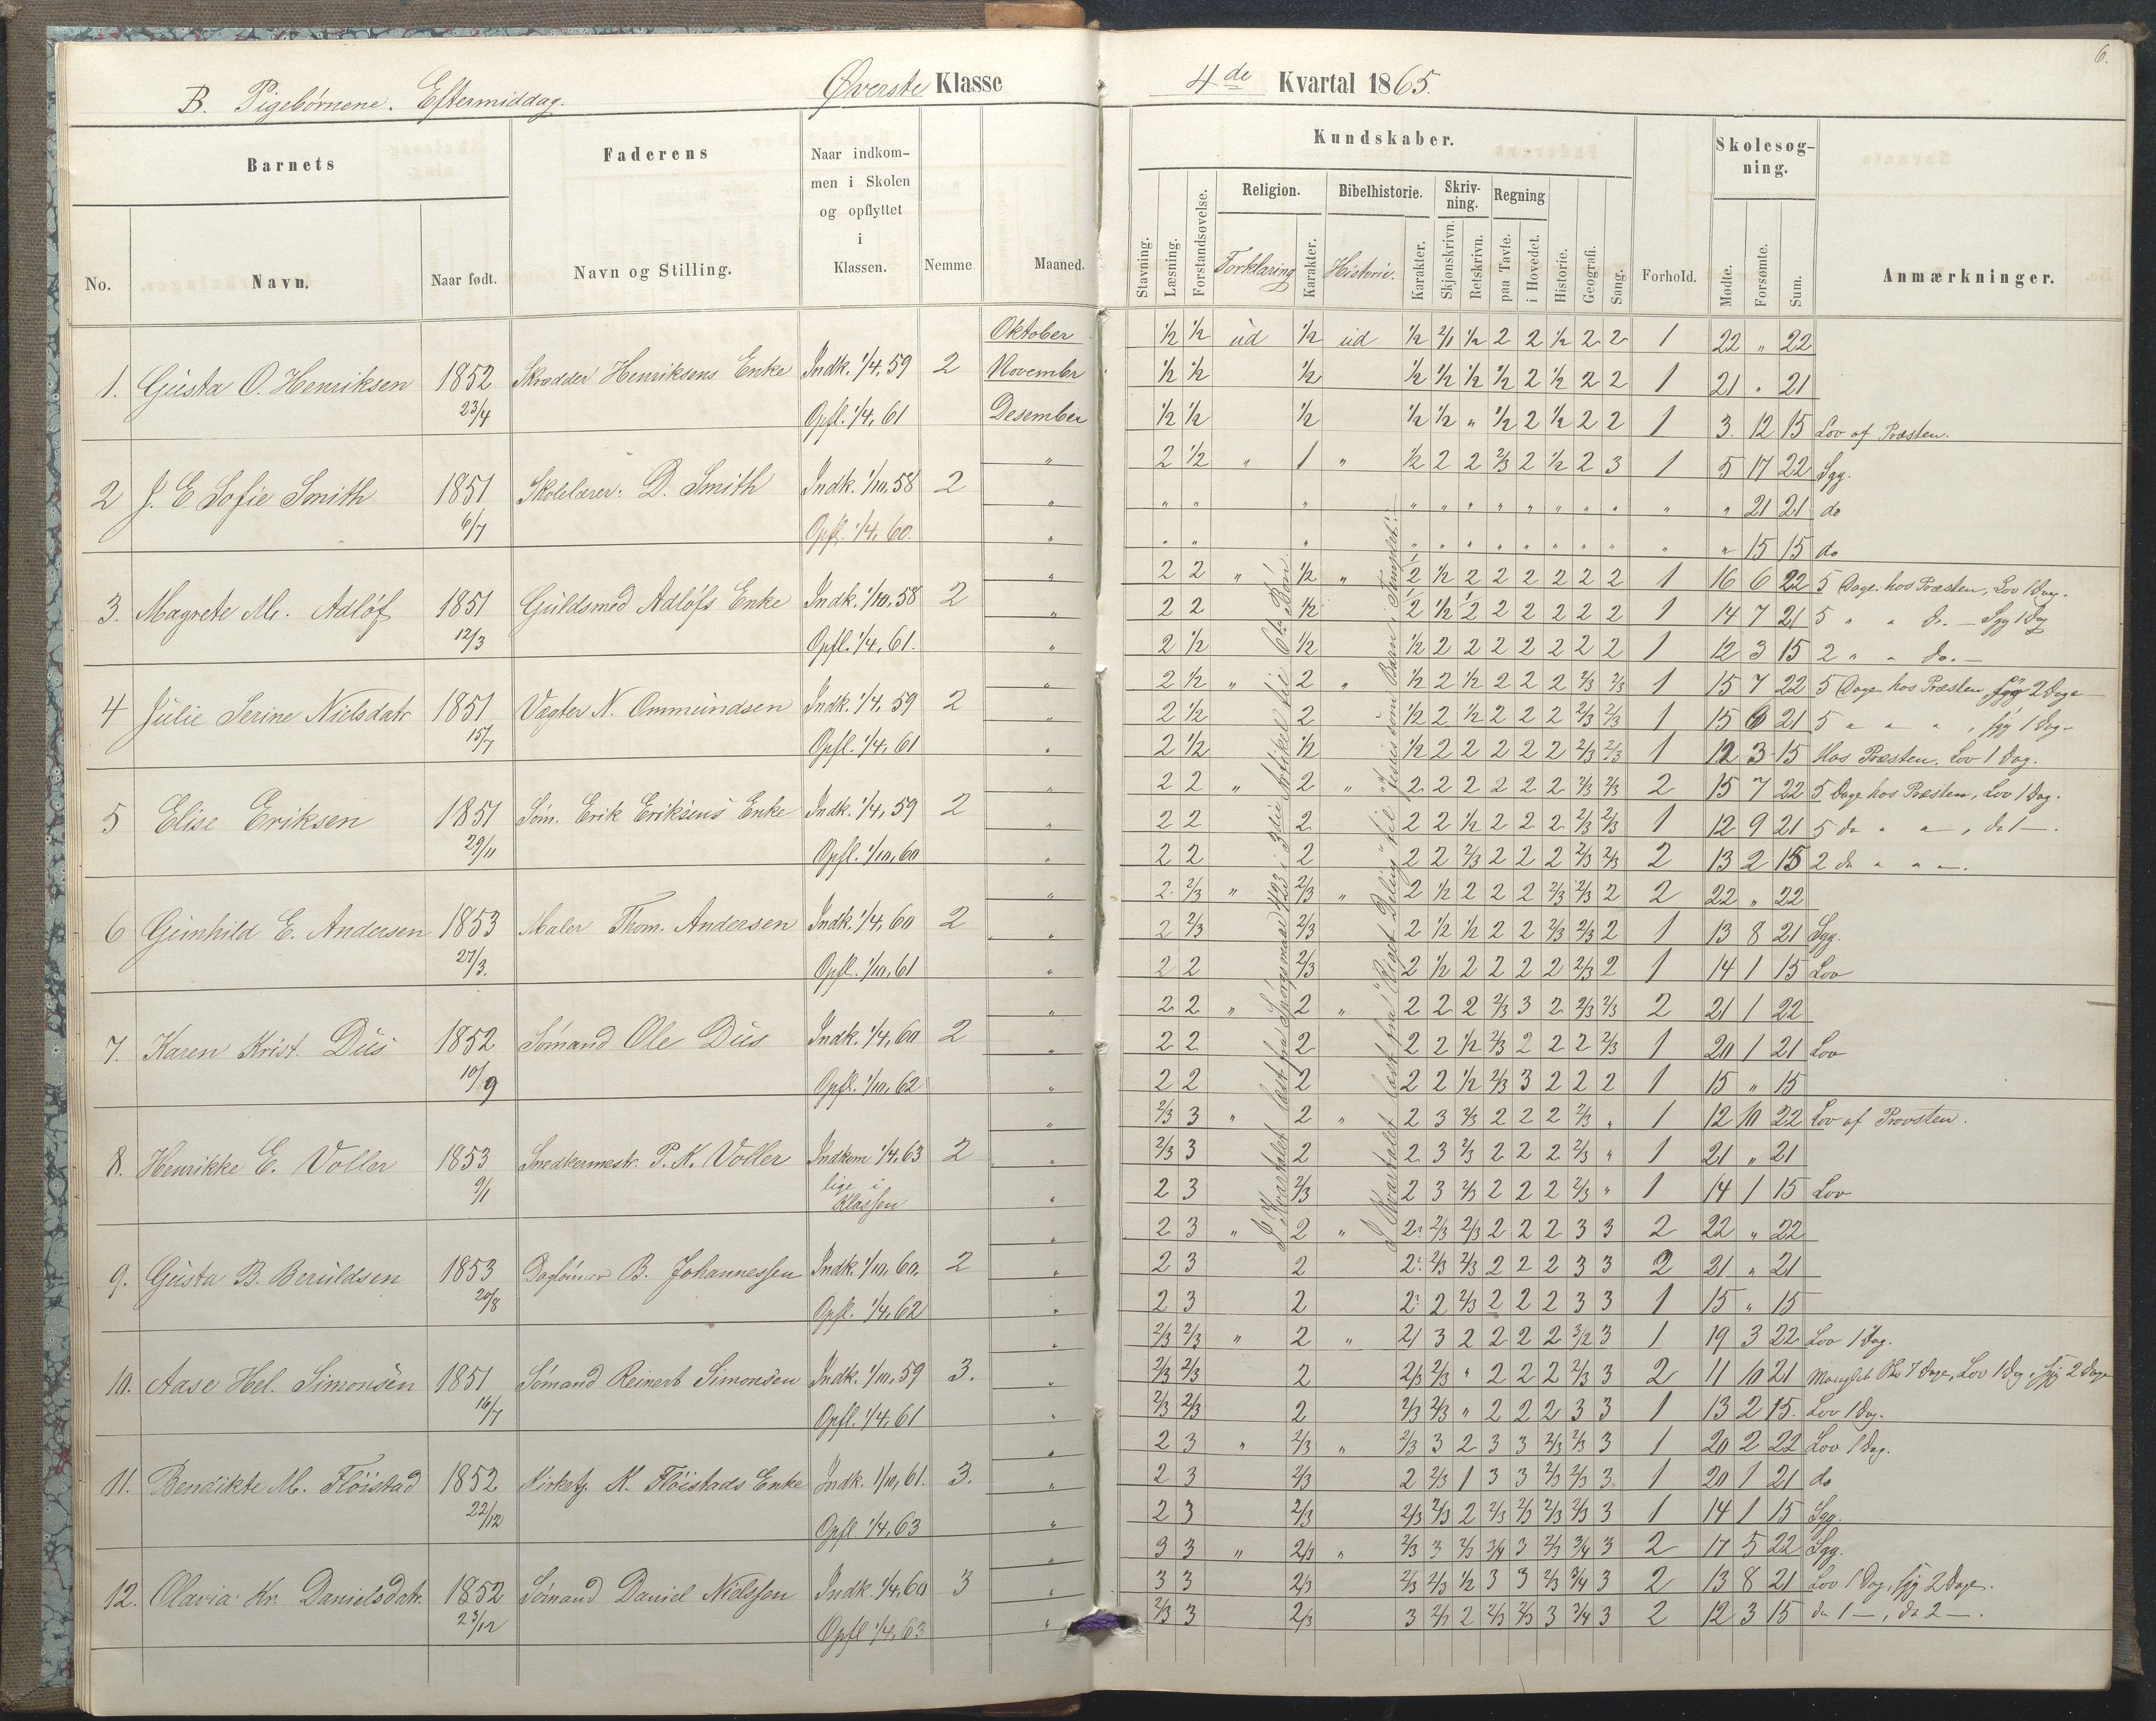 6.
B. Pigebørnene. Eftermiddag. Øverste Klasse 4de Kvartal 1865.
Barnets Faderens Naar indkommen i Skolen og opflyttet i Klassen. Nemme Maaned. Kundskaber. Forhold. Skolesøgning. Anmærkninger.
No. Navn. Naar født. Navn og Stilling. Stavning. Læsning. Forstandsøvelse. Religion. Forklaring Karakter. Bibelhistorie. Historie. Karakter. Skrivning. Skjønskrivn. Retskrivn. Regning paa Tavle. i Hovedet. Historie. Geografi. Sang. Mødte. Forsømte. Sum.
Oktober 1/2 1/2 ud 1/2 ud 1/2 2/1 1/2 2 2 1/2 2 2 1 22 " 22
1. Gusta O. Henriksen 1852 Skrædder Henriksens Enke Indk. 1/4, 59 2 November 1/2 1/2 1/2 1/2 1/2 1/2 1/2 2 1/2 2 2 1 21 " 21
23/4 Opfl. 1/4, 61 Desember 1/2 1/2 1/2 1/2 1/2 " 1/2 2 1/2 2 2 1 3. 12 15 Lov af Præsten.
" 2 1/2 " 1 " 1/2 2 2 2/3 2 1/2 2 3 1 5 17 22 Syg.
2 J. E. Sofie Smith 1851 Skolelærer D. Smith Indk. 1/10, 58 2 " " " " " " " " " " " " " " " 21 21 do
6/7 Opfl. 1/4, 60. " " " " " " " " " " " " " " " 15 15 do
" 2 2 " 1/2 " 1/2 1/2 2 2 2 2 2 2 1 16 6 22 5 Dage hos Præsten, Lov 1 Dag.
3. Magrete M. Adløf 1851 Guldsmed Adløfs Enke Indk. 1/10, 58 2 " 2 2 1/2 1/2 1/2 1/2 2 2 2 2 2 1 14 7 21 5 " " do. — Syg 1 Dag
12/3 Opfl. 1/4, 61. " 2 1/2 1/2 1/2 2 2 2 2 2 2 2 1 12 3 15 2 " " do. —
" 2 1/2 " 2 " 1/2 2 1/2 2 2 2 2/3 2/3 1 15 7 22 5 Dage hos Præsten, syg 2 Dage
4 Julie Serine Nielsdatr 1851 Vægter N. Ommundsen Indk. 1/4, 59 2 " 2 1/2 2 1/2 2 1/2 2 2 2 2/3 2/3 1 15 6 21 5 " " " , syg 1 Dag
15/7 Opfl. 1/4, 61 " 2 1/2 1/2 1/2 2 2 2 2 2 2/3 2/3 1 12 3 15 Hos Præsten. Lov 1 Dag.
" 2 2 " 2 " 2 2 2 2 2 2 2/3 2/3 2 15 7 22 5 Dage hos Præsten, Lov 1 Dag.
5 Elise Eriksen 1851 Søm. Erik Eriksens Enke Indk. 1/4, 59 2 " 2 2 2 2 2 1/2 2 2 2 2/3 2/3 1 12 9 21 5 do " " —, do 1 —.
29/11 Opfl. 1/10, 60 " 2 2 2 2 2 2/3 2 2 2 2/3 2/3 2 13 2 15 2 do " " —.
" 2 2/3 " 2/3 " 2 1/2 2 2 2 2/3 2/3 2 2 22 " 22
6 Gunhild E. Andersen 1853 Maler Thom. Andersen Indk. 1/4, 60 2 " 2 2/3 2/3 2 1/2 1/2 2 2 2/3 2/3 2 1 13 8 21 Syg.
27/3. Opfl. 1/10, 61 " 2 2 2/3 2 1/2 2 2 2 2 2/3 2 1 14 1 15 Lov
" 2 2 " 2 " 2 2 2 2/3 3 2 2/3 2/3 2 21 1 22
7. Karen Krist. Dus 1852 Sømand Ole Dus Indk. 1/4, 60 2 " 2 2 2 2 2 1/2 2/3 2 2 2 2/3 1 20 1 21 Lov
10/9 Opfl. 1/10, 62 " 2 2 2 2 2 1/2 2/3 3 2 2 2 1 15 " 15
" 2/3 3 " 2 " 2 3 2/3 2 2 2 2/3 " 1 12 10 22 Lov af Provsten.
8. Henrikke E. Voller 1853 Snedkermestr. P. K. Voller Indkom 1/4, 63 2 " 2/3 3 2 2 3 2/3 2 2 2 2/3 " 1 21 " 21
9/1 lige i Klassen " 2 3 2/3 2 3 2/3 2 2 2 2/3 " 1 14 1 15 Lov
" 2 3 " 2 " 2 2/3 2/3 2 2 2 3 3 2 22 " 22
9. Gusta B. Beruldsen 1853 Daglønner B. Johannessen Indk. 1/10, 60. 2 " 2 3 2 2 2/3 2/3 2 2 2 3 3 2 21 " 21
20/8 Opfl. 1/4, 62 " 2 3 2 2 2 2/3 2 2 2 3 3 1 15 " 15
" 2/3 2/3 " 2 " 2/1 3 2 2 2 2 3/2 3 1 19 3 22 Lov 1 Dag.
10. Aase Hel. Simonsen 1851 Sømand Reinert Simonsen Indk. 1/10, 59 3. " 2/3 2/3 2 2/3 2/3 " 2 2 2 2/3 3 2 11 10 21 7 Dage, Lov 1 Dag, syg 2 Dage
16/7 Opfl. 1/4, 61 " 2/3 2/3 2 2/3 2/3 " 2 2 2 3 3 1 13 2 15. Lov 1 Dag.
" 2 3 " 2/3 " 2/3 3 2 3 3 2/3 2/3 3 1 20 2 22 Lov 1 Dag.
11. Bendikte M. Fløistad 1852 Kirketj. K. Fløistads Enke Indk. 1/10, 61. 3. " 2 3 2/3 2 2/3 1 3 3 2/3 2/3 3 1 20 1 21 do
22/12 Opfl. 1/4, 63 " 2 3 2/3 2/3 2/3 2 2/3 2/3 2/3 2/3 3 1 14 1 15 Syg.
" 3 3 " 2/3 " 2/3 3 2/3 3/4 3 2/3 3/4 3 2 17 5 22 Syg.
12. Olavia Kr. Danielsdatr. 1852 Sømand Daniel Nielssen Indk. 1/4, 60 3 " 3 3 2/3 2/3 2/3 1/2 3 3 2/3 3/4 3 2 13 8 21 Lov 1 Dag, syg 2 Dage.
23/12 Opfl 1/4, 63 " 2/3 3 2/3 3 2/3 2 2/3 2/3 3 3/4 3 2 12 3 15 do 1 —, do 2 —.
I Kvartalet læst fra Spørgsmaal i 3die Artikel til 6te Bøn.
I Kvartalet læst fra "Riget Deling" til "Jesus som Barn i Templet".